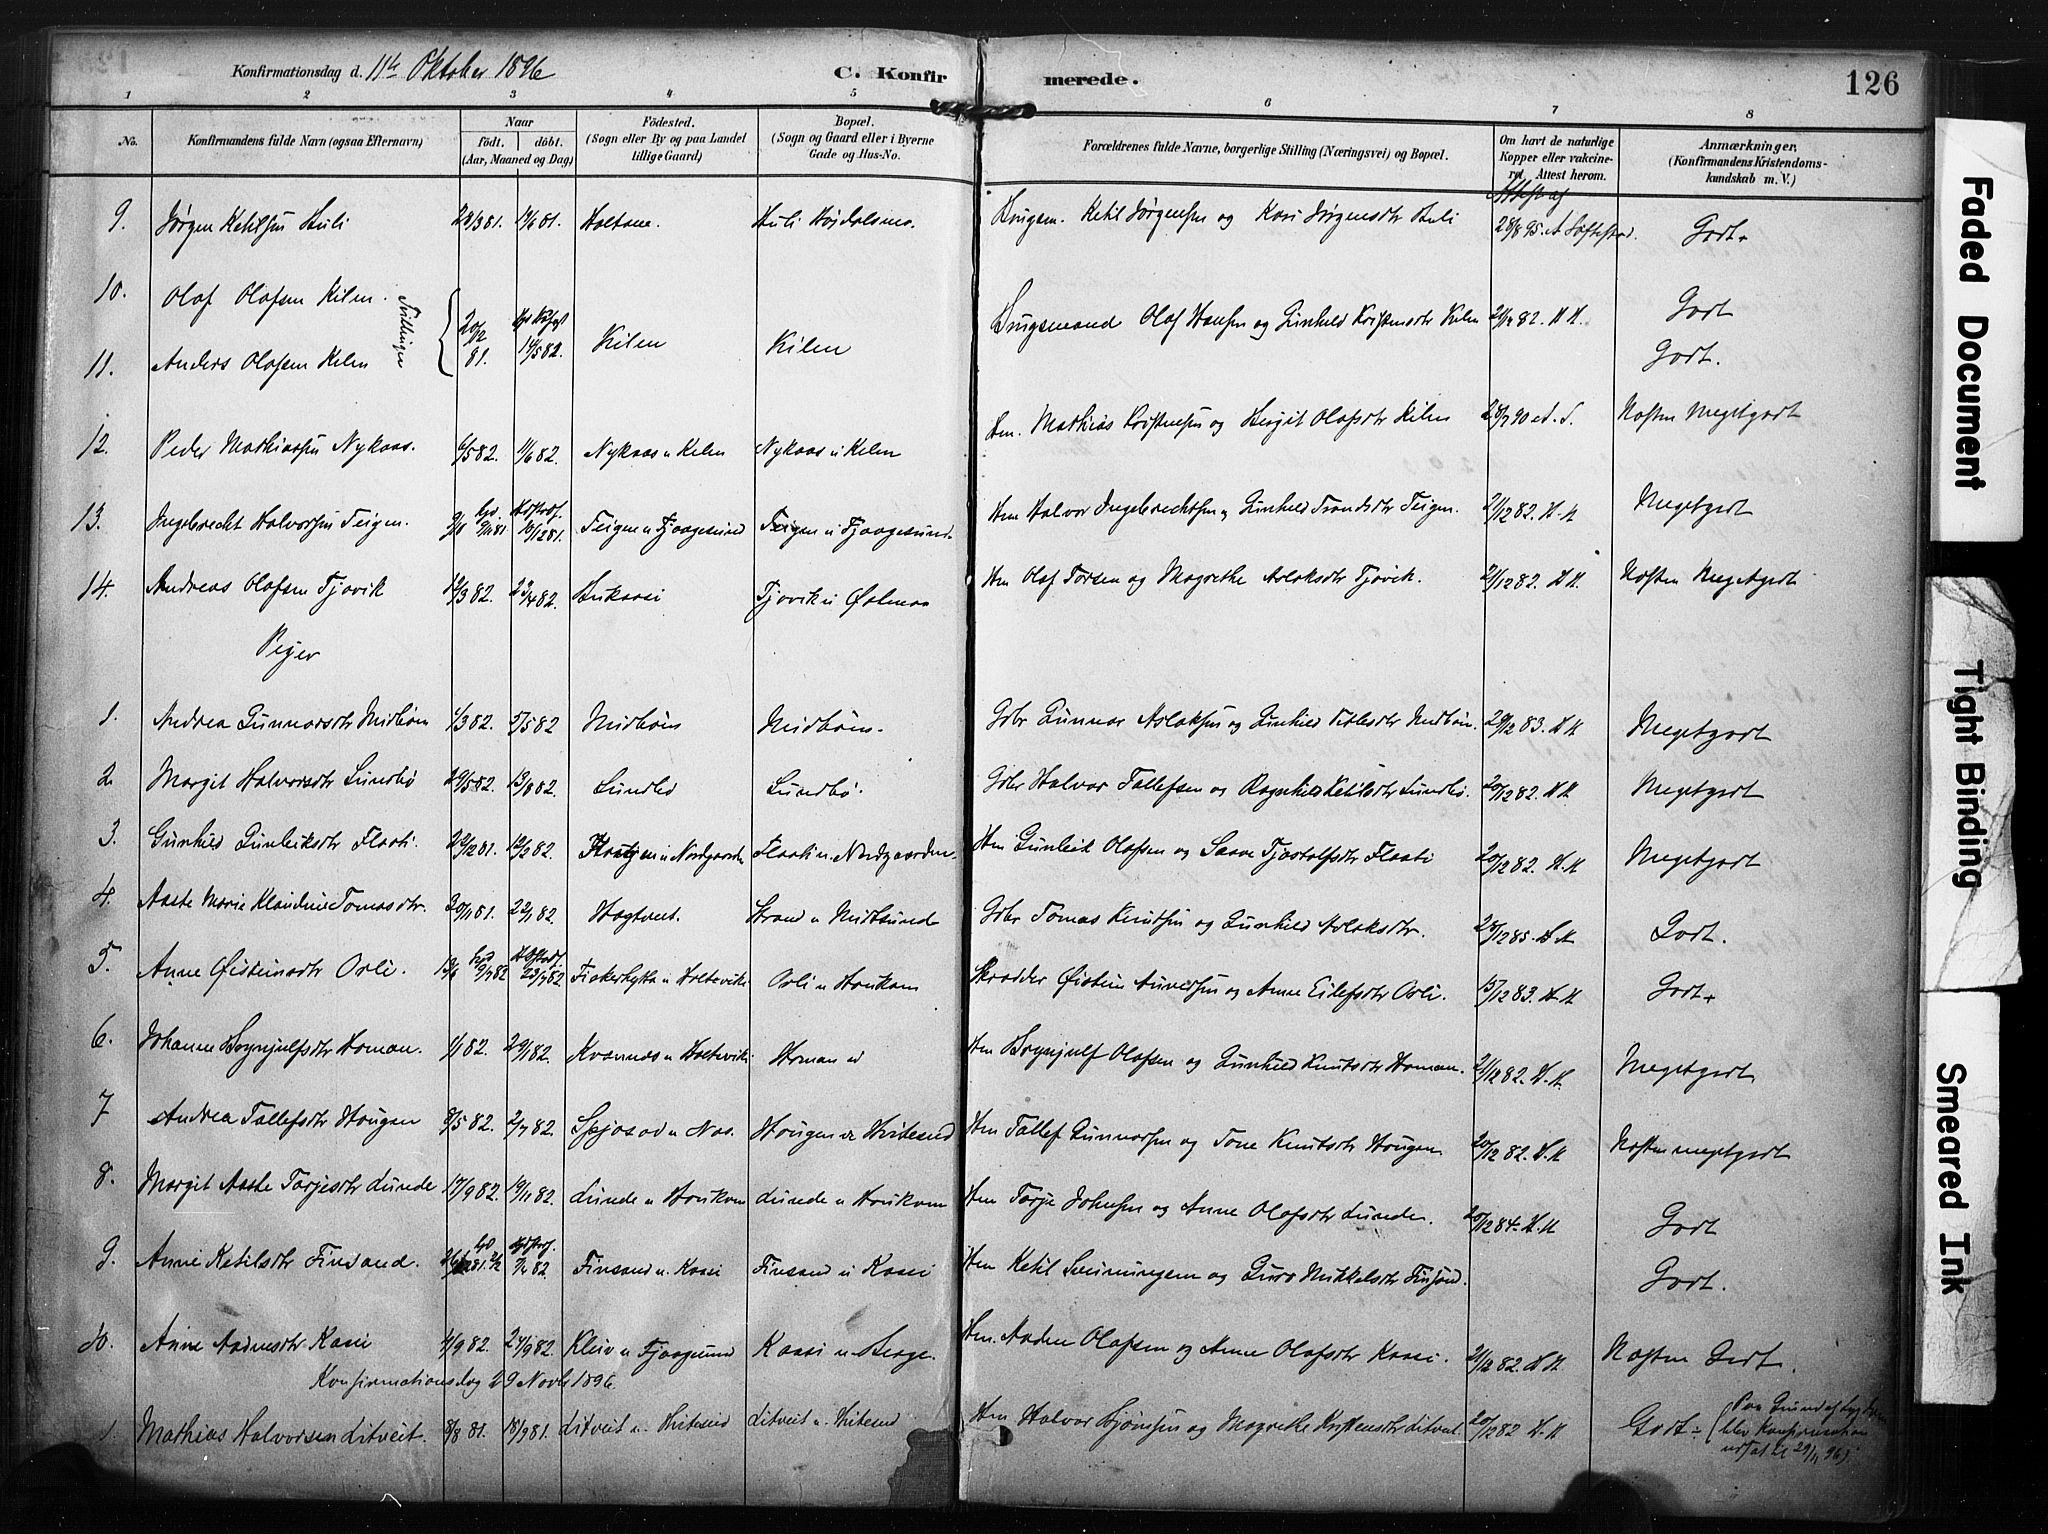 Konfirmationsdag d. 11te Oktober 1896 C. Konfirmerede. 126
1 2 3 4 5 6 7 8
No. Konfirmandens fulde Navn (ogsaa Efternavn) Naar født. døbt. (Aar, Maaned og Dag) Fødested. (Sogn eller By og paa Landet tillige Gaard) Bopæl. (Sogn og Gaard eller i Byerne Gade og Hus-No. Forældrenes fulde Navne, borgerlige Stilling (Næringsvei) og Bopæl. Om havt de naturlige Kopper eller vakcineret. Attest herom. Anmærkninger. (Konfirmandens Kristendomskundskab m. V.)
9. Jørgen Ketilsen Huli 19/6 81. Holtane. Huli Høidalsmo. Ketil Jørgensen og Kari Jørgensdtr Huli 28/8 95. Godt.
10. Olaf Olafsen Kilen. Tvillinger 20/2 81. 14/5 82. Kilen Kilen Brugsmand Olaf Hansen og Gunhild Kristensdtr Kilen 21/12 82. H H. Godt
11. Anders Olafsen Kilen Godt.
12. Peder Mathiassen Nykaas. 6/5 82. 11/6 82. Nykaas u Kilen Nykaas u Kilen Hm. Mathias Kristensen og Bergit Olafsdtr Kilen Næsten Megetgodt
13. Ingebrecht Halvorsen Teigen. Teigen u Fjaagesund Teigen u Fjaagesund Hm Halvor Ingebrechtsen og Gunhild Trondsdtr Teigen. 21/12 82. H. H Megetgodt
14. Andreas Olafsen Tjovik 12/3 82. 23/4 82. Tjovik u Hm Olaf Torsen og Magrethe Aslaksdtr Tjovik. 21/12 82. H H. Næsten Megetgodt
Piger
1. Andrea Gunnarsdtr Midbøen 4/3 82. 5/5 82 Midbøen Midbøen. Gbr Gunnar Aslaksen og Gunhild Midbøen. 29/12 83. H H Megetgodt
2 Margit Halvorsdtr Sundbø 29/5 82. 13/8 82. Sundbø Sundbø. Gbr Halvor Tallefsen og Ragnhild Ketilsdtr Sundbø. 20/12 82. H H. Megetgodt
3. Gunhild Gunleiksdtr Flaati. 29/12 81. 12/2 82. u Nordgaarden Flaati u Nordgaarden. Hm Gunleik Olafsen og Saave Tjostolfsdtr Flaati 20/12 82. H. H Megetgodt
4. Aaste Marie Klaudine Tomasdtr. 30/11 81. 22/1 82. Hagtveit. Strand u Midtsund Gbr Tomas Knudsen og Gunhild Aslaksdtr. 28/12 85. H H Godt.
5. Anne Øisteinsdtr Orli. 13/6 9/7 82 23/7 82. Orli u Haukom Skrædder Øistein og Anne Eilefsdtr Orli. 15/12 83. H. H Godt.
6. Johanne Brynjulfsdtr Homan. 1/1 82. 29/1 82. Kvannaas u Holtevik Homan u Hm Brynjulf Olafsen og Gunhild Knutsdtr Homan. 21/12 82. H. H. Megetgodt
7 Andrea Tallefsdtr Haugen 8/5 82. 2/7 82. u Næs. Haugen u Hvitesed Hm Tallef Gunnarsen og Tone Knutsdtr Haugen 20/12 82. H. H Næsten megetgodt
8. Margit Aaste Tarjesdtr Lunde 17/9 82. 19/11 82. Lunde u Haukom Lunde u Haukom Hm Tarje Johnsen og Anne Olafsdtr Lunde. 20/12 84. H. H Godt
9. Anne Ketilsdtr Finsand. Finsand u. Kaasi Finsand u Kaasi Hm Ketil Sveinungsen og Guro Mikkelsdtr Finsand. Godt.
10. Anne Aadnesdtr Kaasi 4/9 82. 24/9 82. Kleiv u Fjaagesund Kaasi u Berge. Hm. Aadne Olafsen og Anne Olafsdtr Kaasi. 21/12 82. H H. Næsten Godt.
Konfirmationsdag 29 Novbr 1896.
1. Mathias Halvorsen Litveit. 8/8 81. 18/9 81. Litveit u. Hvitesed Litveit u. Hvitesed Hm Halvor Bjørnsen og Magrethe Kristensdtr Litveit. 20/12 82 H. H Godt (Paa Grund af Sygdom blev Konfirmation udsat til 29/11 96).
Faded Document
Tight Binding
Smeared Ink